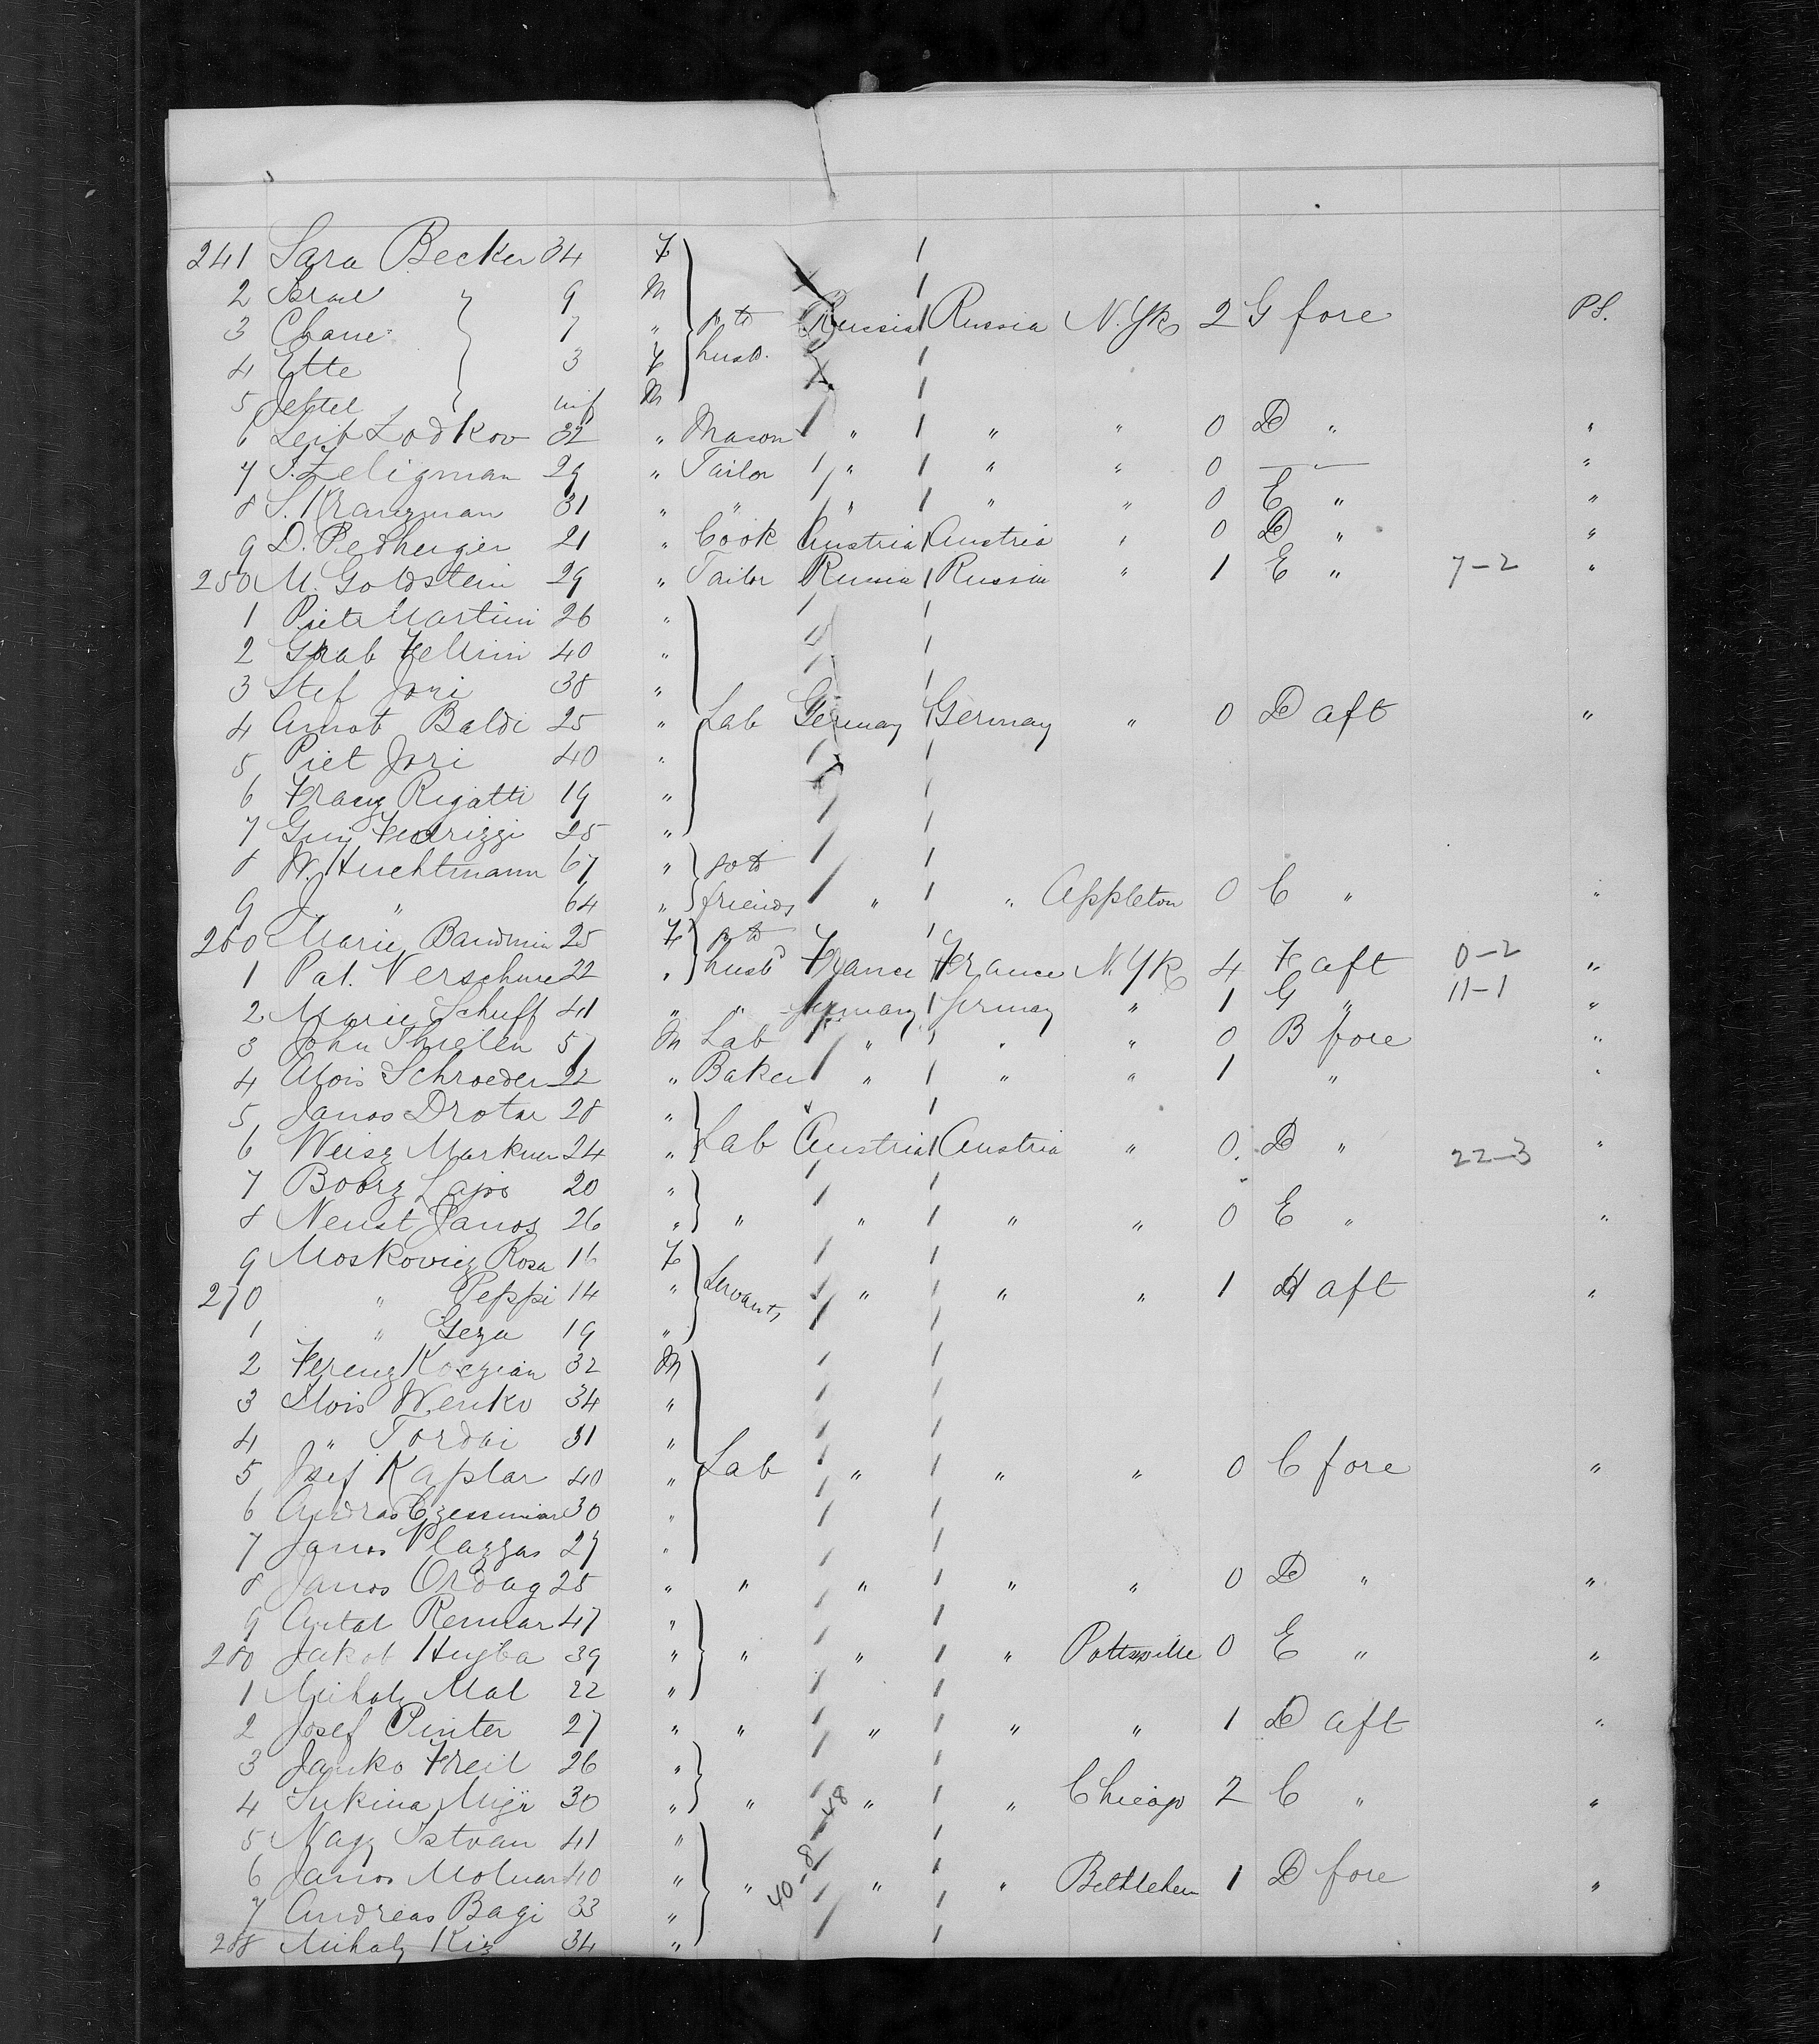 241 Sara Becker 34 F
2 Israel 9 M
3 Chane 7 " goto husb. Russia Russia N. Yk 2 G fore P.S.
4 Ette 3 F
5 inf M
6 Leib Lodkov 32 " Mason " " " 0 D " "
7 S. Zeligman 29 " Tailor " " " 0 — " — "
8 S. Kranzman 31 " " " " " 0 E " "
9 D. 21 " Cook Austria Austria " 0 D " "
250 M. Goldstein 29 " Tailor Russia Russia " 1 E " 7-2 "
1 Piet Martini 26 "
2 Grab 40 "
3 Stef Jori 38 "
4 Amob Baldi 25 " Lab Germay Germay " 0 D aft "
5 Piet Jori 40 "
6 Franz Rigatti 19 "
7 25 "
8 W. Huchtmann 67 " goto
9 J " 64 " friends " " Appleton 0 C " "
260 Marie 25 F goto
1 Pat. 22 " husbd France France N. Yk 4 F aft 0-2 "
2 Marie Schuff 41 " " Germany Germay " 1 G " 11-1 "
3 John Thielen 51 M Lab " " " 0 B fore "
4 Alois Schroeder 22 " Baker " " " 1 " "
5 Janos Drotar 28 "
6 Weisz 24 " Lab Austria Austria " 0 D " 22-3 "
7 Lajos 20 "
8 Janos 26 " " " " " 0 E " "
9 Moskovicz Rosa 16 F
270 " Peppi 14 " Servants " " " 1 H aft "
1 " Geza 19 "
2 Ferenz 32 M
3 Wenko 34 "
4 " Tordai 31 "
5 Josef Kaplar 40 " Lab " " " 0 C fore "
6 Andras 30 "
7 Janos 27 "
8 Janos Ordag 25 " " " " " 0 D " "
9 Antal 47 "
280 Jakob 39 " " " " Pottsville 0 E " "
1 Mihaly Mal 22 "
2 Josef Pinter 27 " " " " " 1 D aft "
3 Janko Freil 26 "
4 30 " " " " Chicago 2 C " "
5 Nagy Istvan 41 "
6 Janos Molnar 40 " " " " Bethlehem 1 D fore "
7 Andreas Bagi 33 "
288 Mihaly Kis 34 "
40-8-48